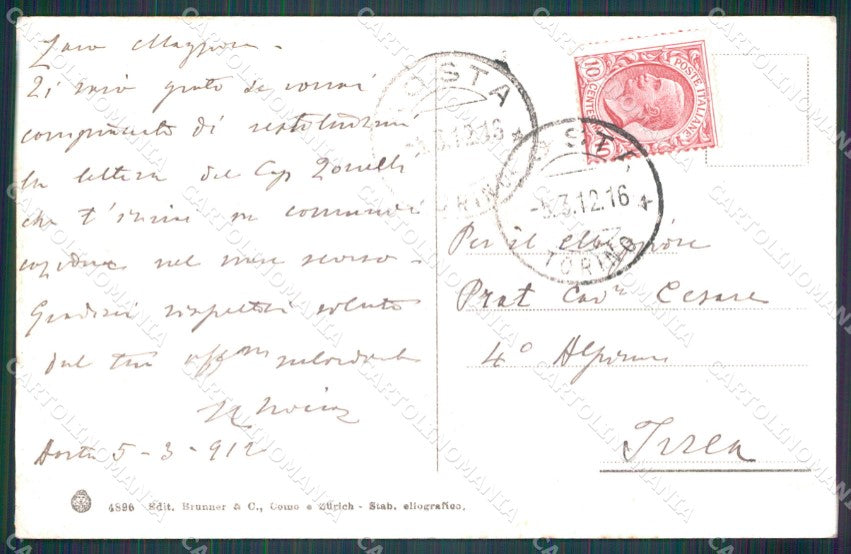 Caro Maggiore -
Ti sarò grato se vorrai
compiacerti di restituirmi
la lettera del Cap Zanelli
che t'inviai in comunicazione
nel mese scorso -
Gradisci rispettosi saluti
dal tuo aff.mo
Aosta 5-3-912
4896 Edit. Brunner & C., Como e Zürich - Stab. eliografico.
AOSTA
-5.3.12.16
TORINO
AOSTA
-5.3.12.16
TORINO
POSTE ITALIANE
10 CENTES. 10
Per il Maggiore
Prat Cav.r Cesare
4° Alpini
Ivrea
CARTOLINOMANIA